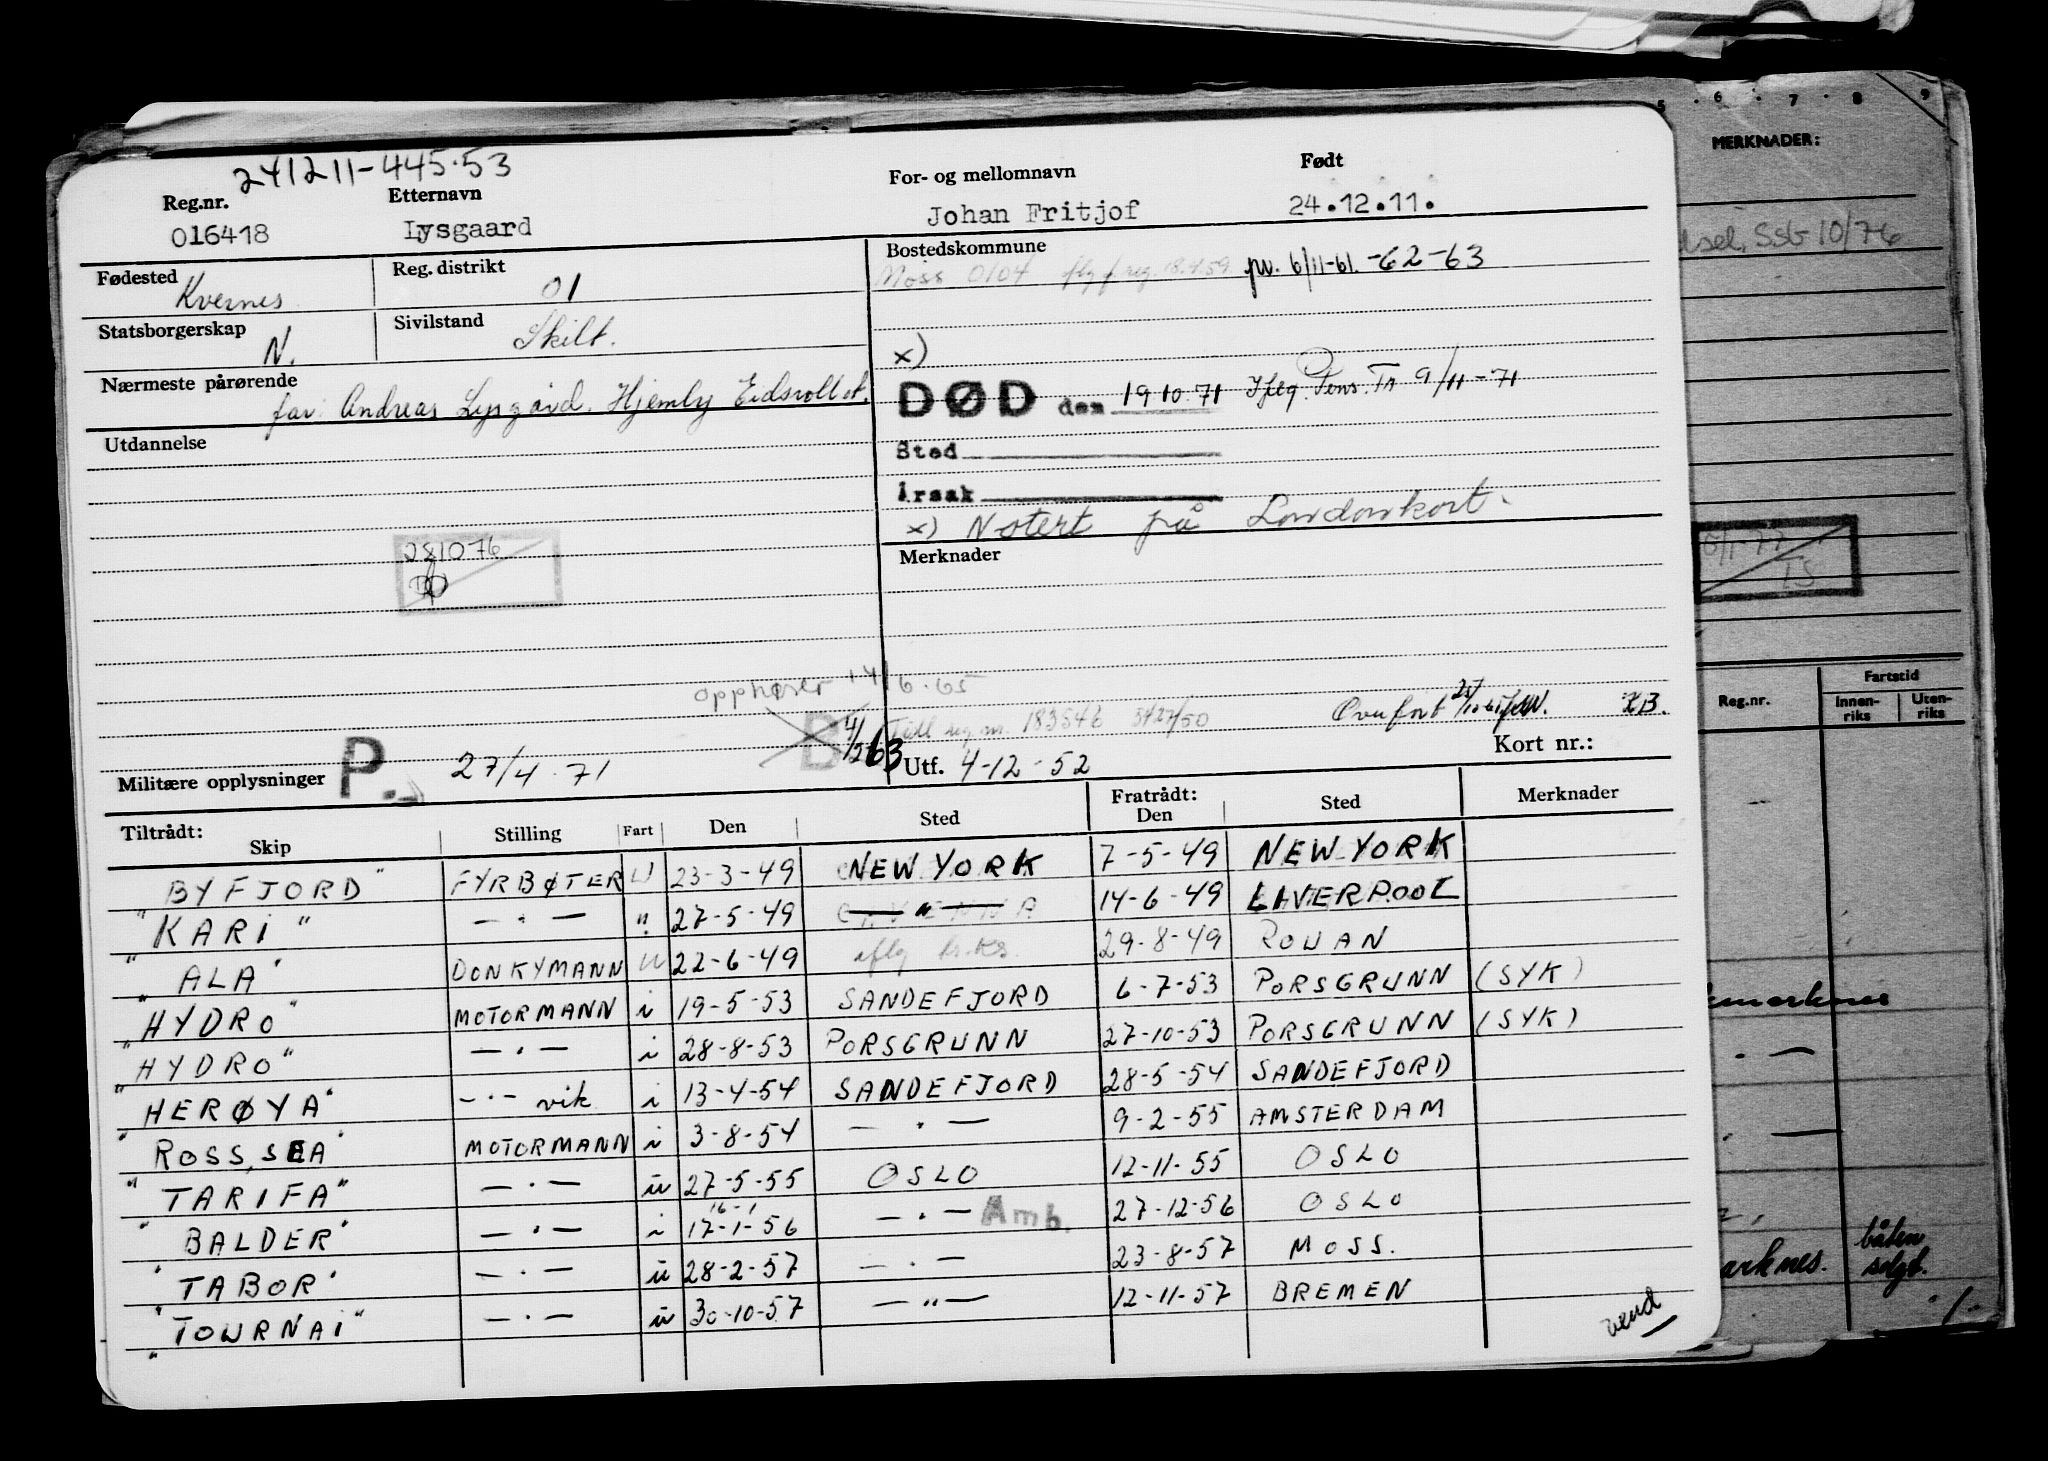 241211-445.53
Reg.nr. Etternavn For- og mellomnavn Født
016418 Lysgaard Johan Fritjof 24.12.11.
Fødested Kvernes
Reg. distrikt 01
Statsborgerskap N.
Sivilstand Skilt.
Nærmeste pårørende
far: Andreas Lysgård. Hjemly Eidsvoll st.
Utdannelse
281076
Bostedskommune
Moss 0104 flg freg. 18.4.59. pv. 6/11-61. -62-63
x)
DØD den 19 10.71 Iflg. Pens. Tr 9/11-71
Sted
Årsak
x) Notert på Londonkort.
Merknader
opphører 14/6.65
B 4/263
Tidl reg.nr. 183546 5427/50
Overført
KB.
Kort nr.:
Militære opplysninger P. 27/4.71
Utf. 4-12-52
Tiltrådt: Skip Stilling Fart Den Sted Fratrådt: Den Sted Merknader
"BYFJORD" FYRBØTER U 23-3-49 NEW YORK 7-5-49 NEW YORK
"KARI" — · — " 27-5-49 — " — 14-6-49 LIVERPOOL
"ALA" DONKYMANN U 22-6-49 iflg 29-8-49 ROUAN
"HYDRO" MOTORMANN i 19-5-53 SANDEFJORD 6-7-53 PORSGRUNN (SYK)
"HYDRO" — · — i 28-8-53 PORSGRUNN 27-10-53 PORSGRUNN (SYK)
"HERØYA" — · — vik. i 13-4-54 SANDEFJORD 28-5-54 SANDEFJORD
"ROSS SEA" MOTORMANN i 3-8-54 — · — 9-2-55 AMSTERDAM
"TARIFA" — · — u 27-5-55 OSLO 12-11-55 OSLO
16-1
"BALDER" — · — i 17-1-56 — · — Amb. 27-12-56 OSLO
"TABOR" — · — u 28-2-57 — · — 23-8-57 MOSS.
"TOURNAI" — · — u 30-10-57 — " — 12-11-57 BREMEN
"
vend
5 · 6 · 7 · 8 · 9
MERKNADER:
SSG 10/76
6/1-77
TS
Reg.nr. Fartstid
Innen-riks Uten-riks
båten
solgt.